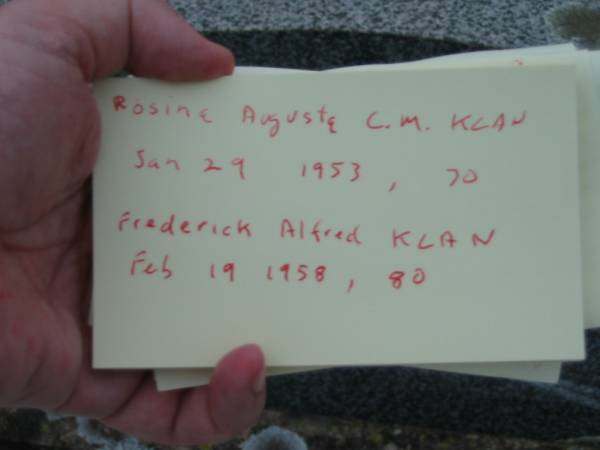 Rosine Auguste C.M. KLAN
Jan 29 1953, 70
Frederick Alfred KLAN
Feb 19 1958, 80